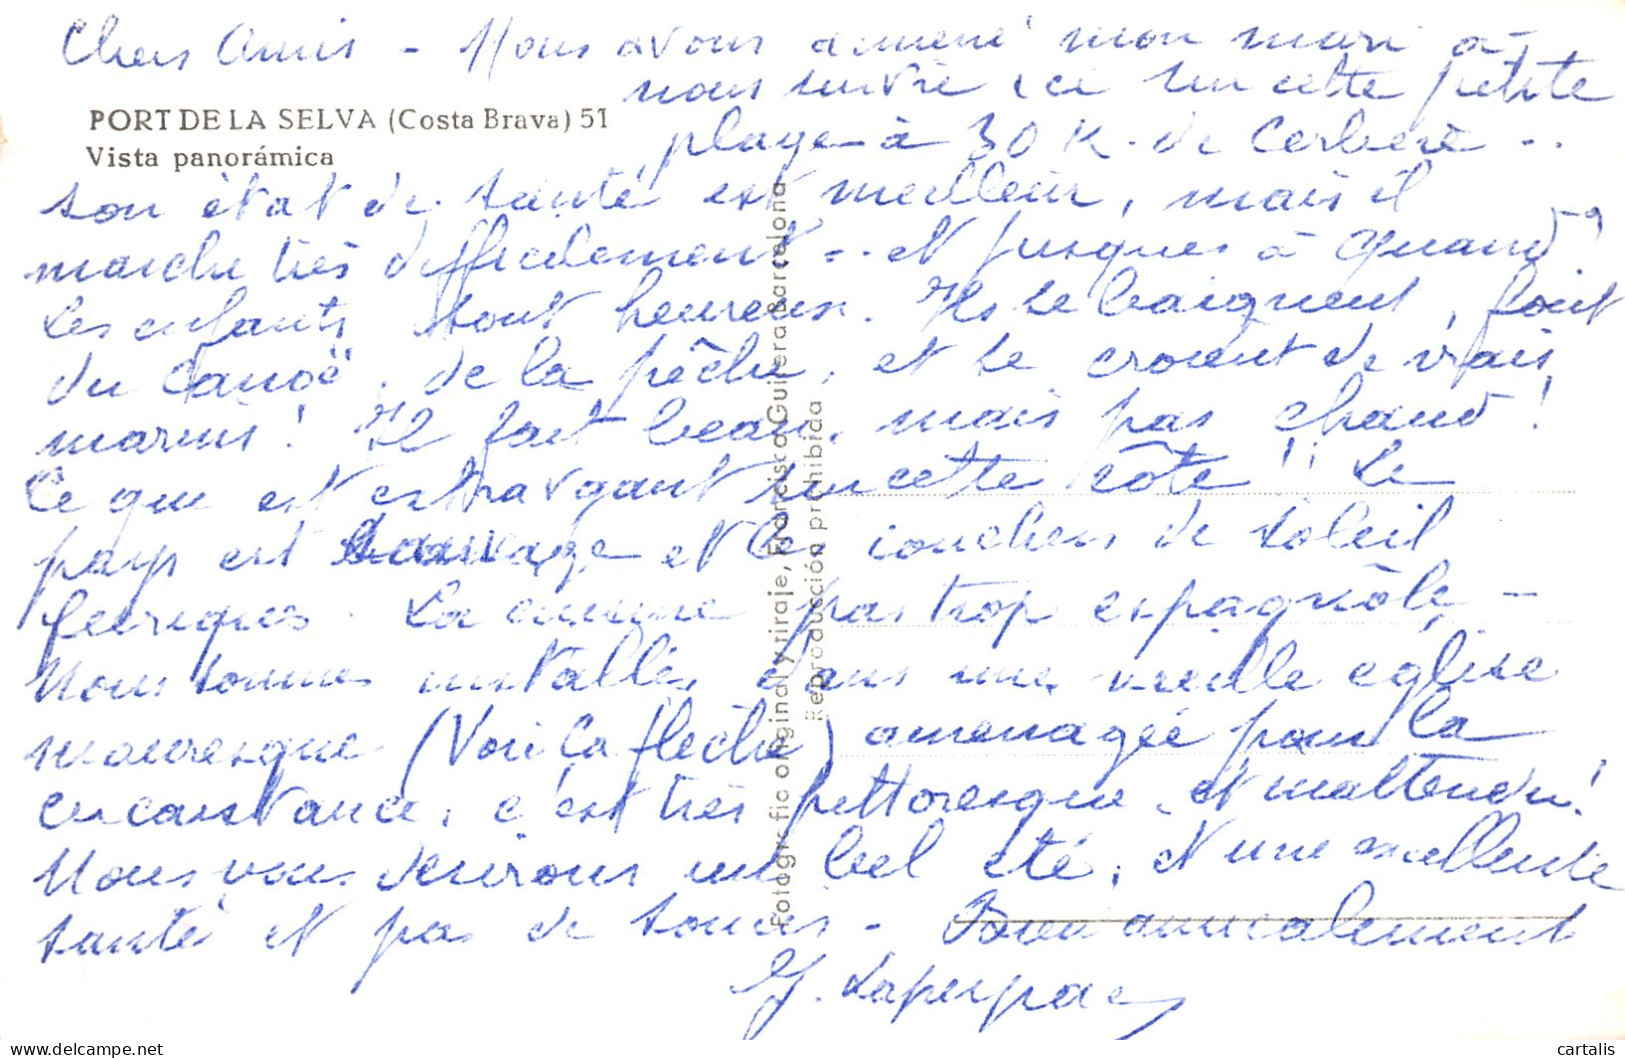 Chers Amis - Nous avons amené mon mari à
nous suivre ici sur cette petite
PORT DE LA SELVA (Costa Brava) 51
Vista panorámica
plage à 30 K. de Cerbère ..
son état de santé est meilleur, mais il
marche très difficilement .. et jusques à quand ?
Les enfants sont heureux. Ils se baignent, font
du canoë, de la pêche, et se croient de vrais
marins ! Il fait beau, mais pas chaud !
Ce qui est extravagant sur cette côte !! Le
pays est sauvage et les couchers de soleil
féeriques. La cuisine pas trop espagnole -
Nous sommes installés dans une vieille église
mauresque (Voir la flèche) aménagée pour la
circonstance, c'est très pittoresque et inattendu !
Nous vous désirons un bel été, et une excellente
santé et pas de soucis - Bien amicalement
Fotografico original y tiraje, Francisco Guillera Barcelona
Reproducción prohibida
cartalis